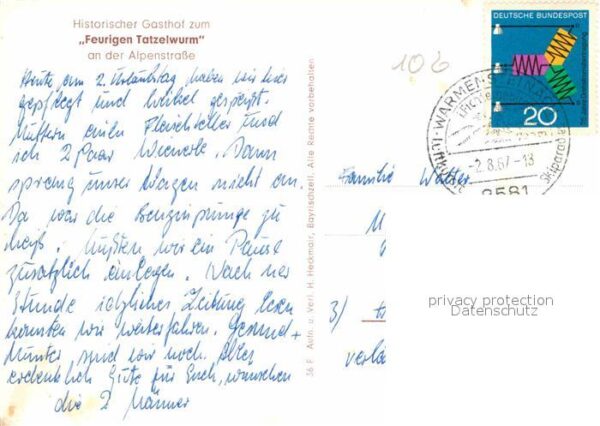 Historischer Gasthof zum
„Feurigen Tatzelwurm"
an der Alpenstraße
Heute am 2. Urlaubstag haben wir hier
gepflegt und heikel gespeist.
Muttern einen Fleischteller und
ich 2 Paar Wienerle. Dann
sprang unser Wagen nicht an.
Da war die Benzinpumpe zu
heiß. Mußten wir ein Pause
zusätzlich einlegen. Nach ner
Stunde Zeitung lesen
konnten wir weiterfahren. Gesund +
Munter sind wir noch. Alles
erdenklich Gute für Euch, wünschen
die 2 Männer
36 F Aufn. u. Verl. H. Heckmair, Bayrischzell. Alle Rechte vorbehalten
106
DEUTSCHE BUNDESPOST
20
WARMENSTEINACH
-2.8.67-13
8581
Skiparadies
Familie Walter
M
3/
verla
privacy protection
Datenschutz